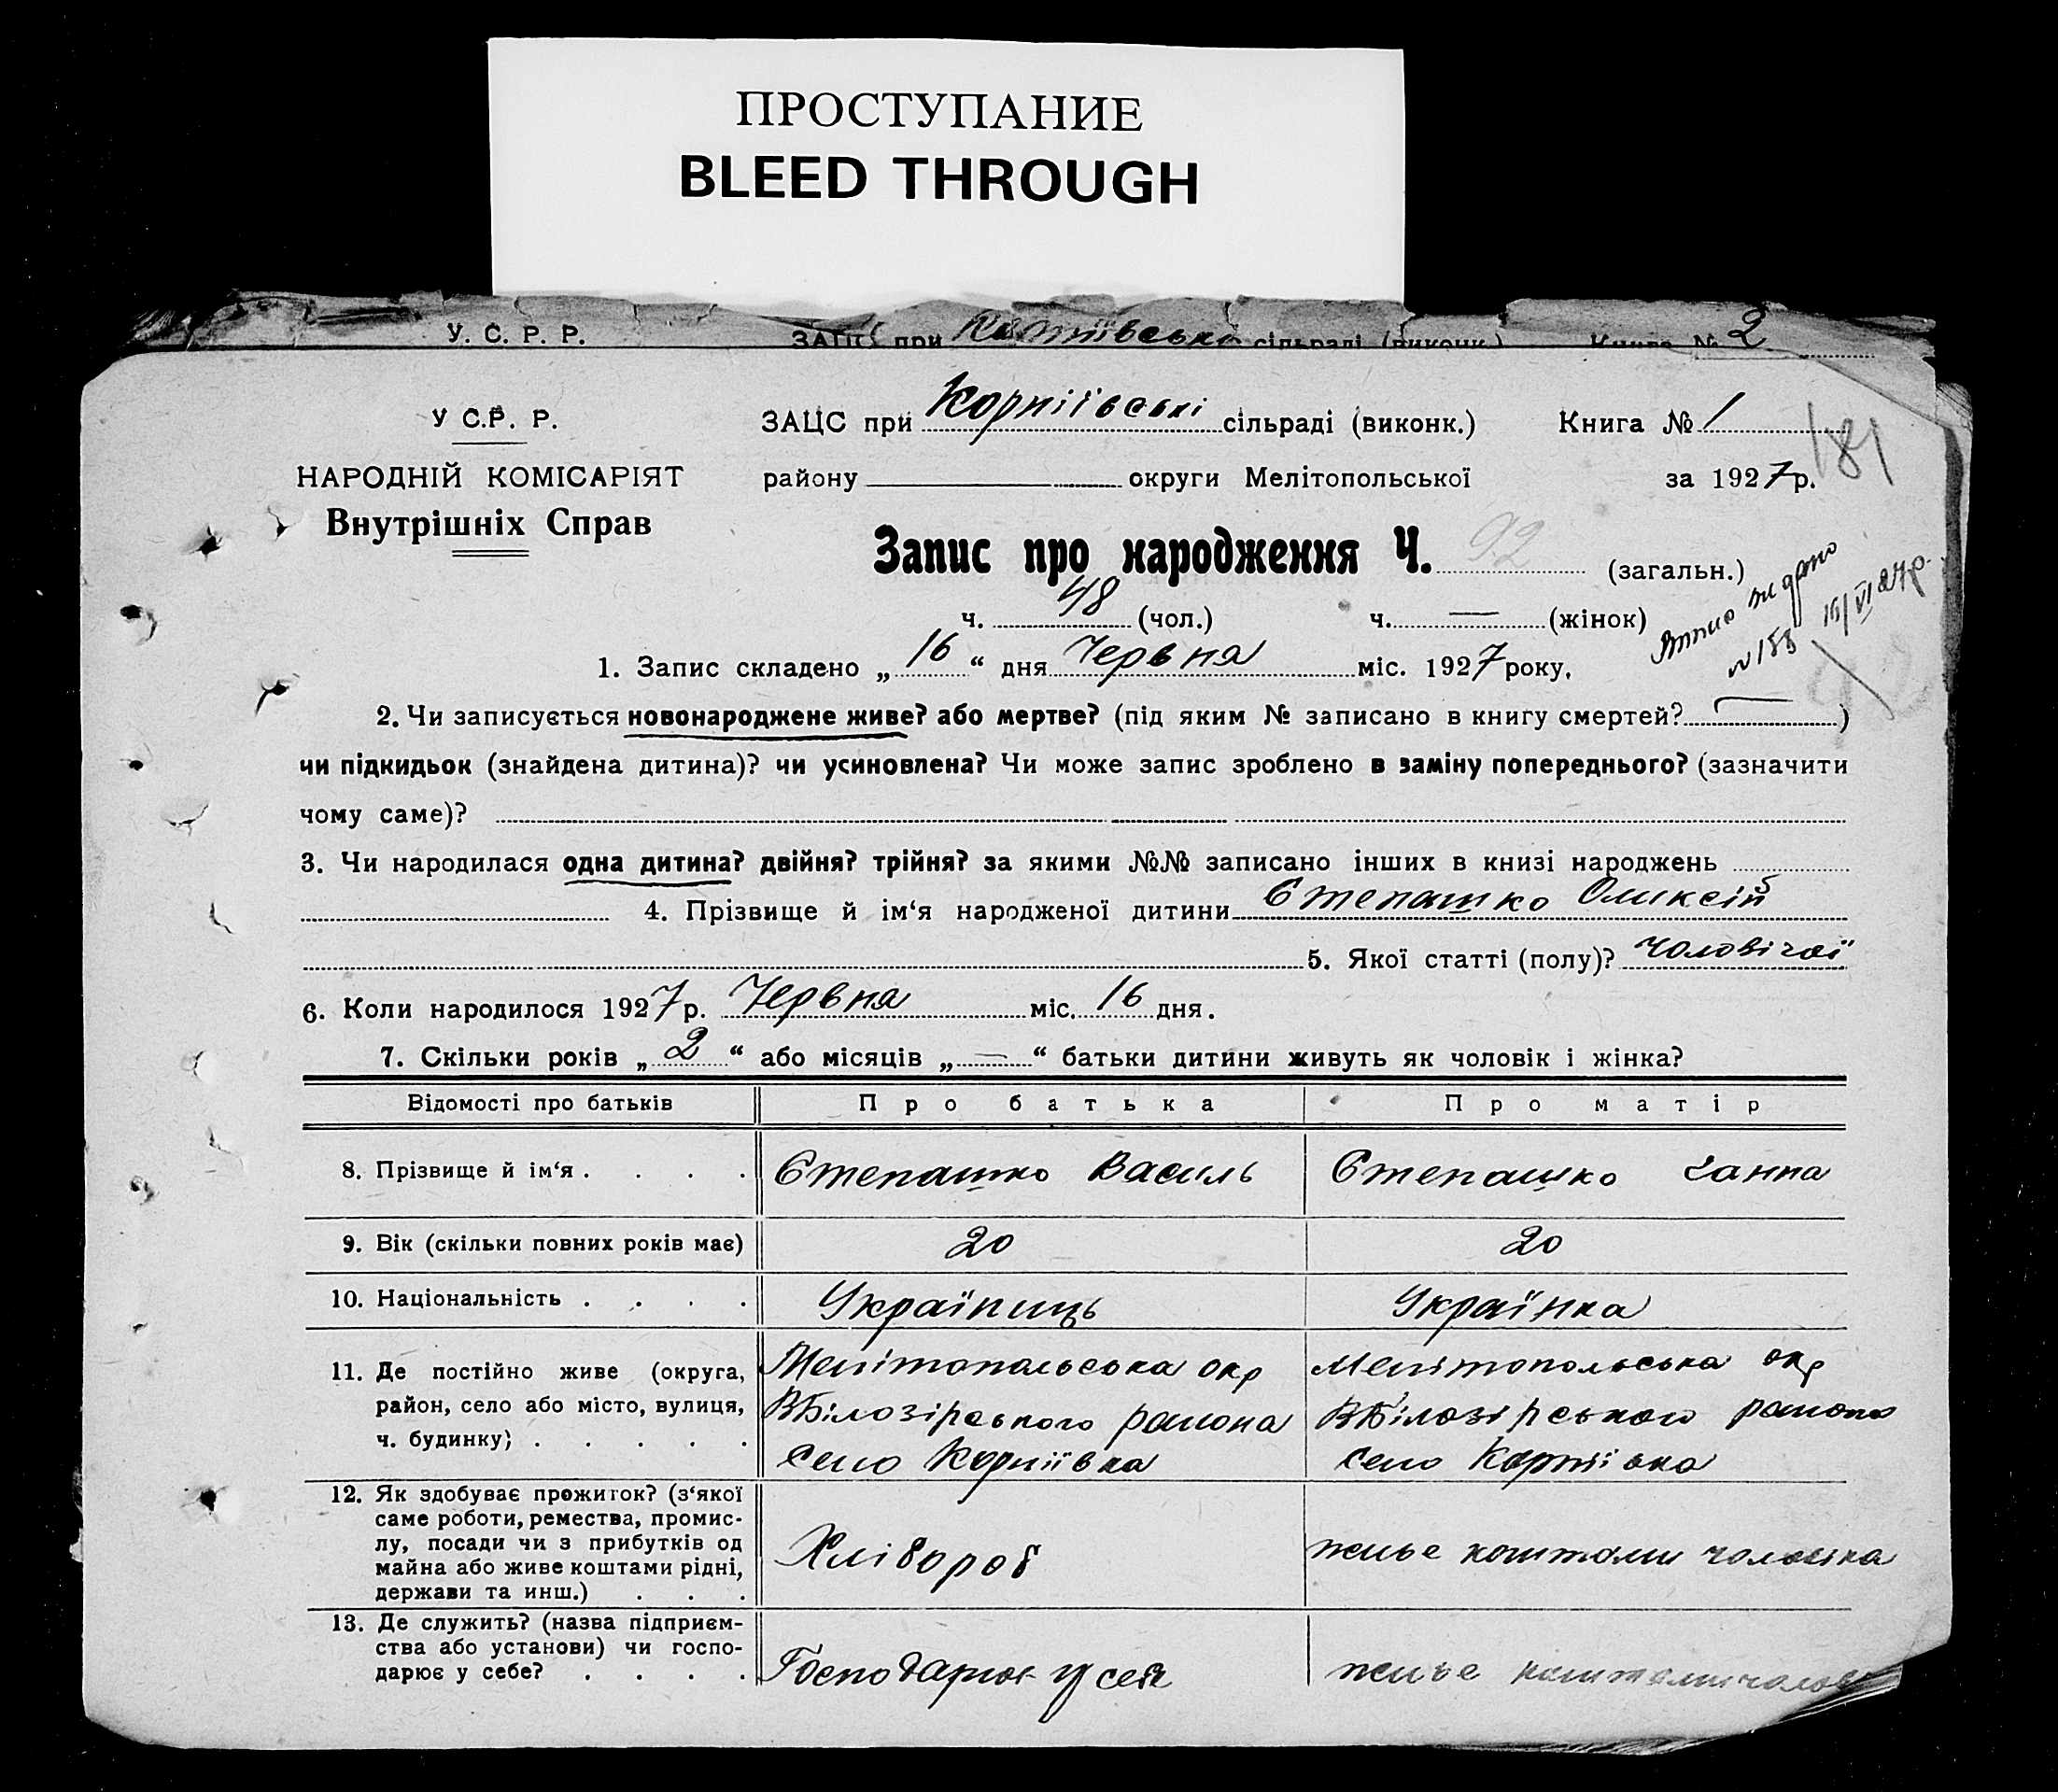 ПРОСТУПАНИЕ
BLEED THROUGH
У. С. Р. Р. ЗАЦС при сільраді (виконк.) Книга № 2
У С.Р. Р. ЗАЦС при Корніївські сільраді (виконк.) Книга № 1
181
НАРОДНІЙ КОМІСАРІЯТ району округи Мелітопольської за 1927р.
Внутрішніх Справ
Запис про народження Ч. 92 (загальн.)
ч. 48 (чол.) ч. — (жінок)
Витяг видано
№ 158 16/VI 27р.
1. Запис складено „ 16 “ дня Червня міс. 1927 року,
2. Чи записується новонароджене живе? або мертве? (під яким № записано в книгу смертей? — )
чи підкидьок (знайдена дитина)? чи усиновлена? Чи може запис зроблено в заміну попереднього? (зазначити
чому саме)?
3. Чи народилася одна дитина? двійня? трійня? за якими №№ записано інших в книзі народжень
4. Прізвище й ім‘я народженої дитини Степашко Оликсій
5. Якої статті (полу)? чоловічої
6. Коли народилося 1927р. Червня міс. 16 дня.
7. Скільки років „ 2 “ або місяців „ — “ батьки дитини живуть як чоловік і жінка?
Відомості про батьків Про батька Про матір
8. Прізвище й ім‘я . . . . Степашко Василь Степашко Ганна
9. Вік (скільки повних років має) 20 20
10. Національність . . . . Українищь Українка
11. Де постійно живе (округа, Мелітопольська окр Мелітопольська окр
район, село або місто, вулиця, ВБілозірського района ВБілозірського района
ч. будинку) . . . . . село Корніївка село Корніївка
12. Як здобуває прожиток? (з‘якої
саме роботи, ремества, промис-
лу, посади чи з прибутків од Хлібороб живе коштоми чоловіка
майна або живе коштами рідні,
держави та инш.) . . .
13. Де служить? (назва підприєм-
ства або установи) чи госпо-
дарює у себе? . . . . Господарює у себе живе коштоми